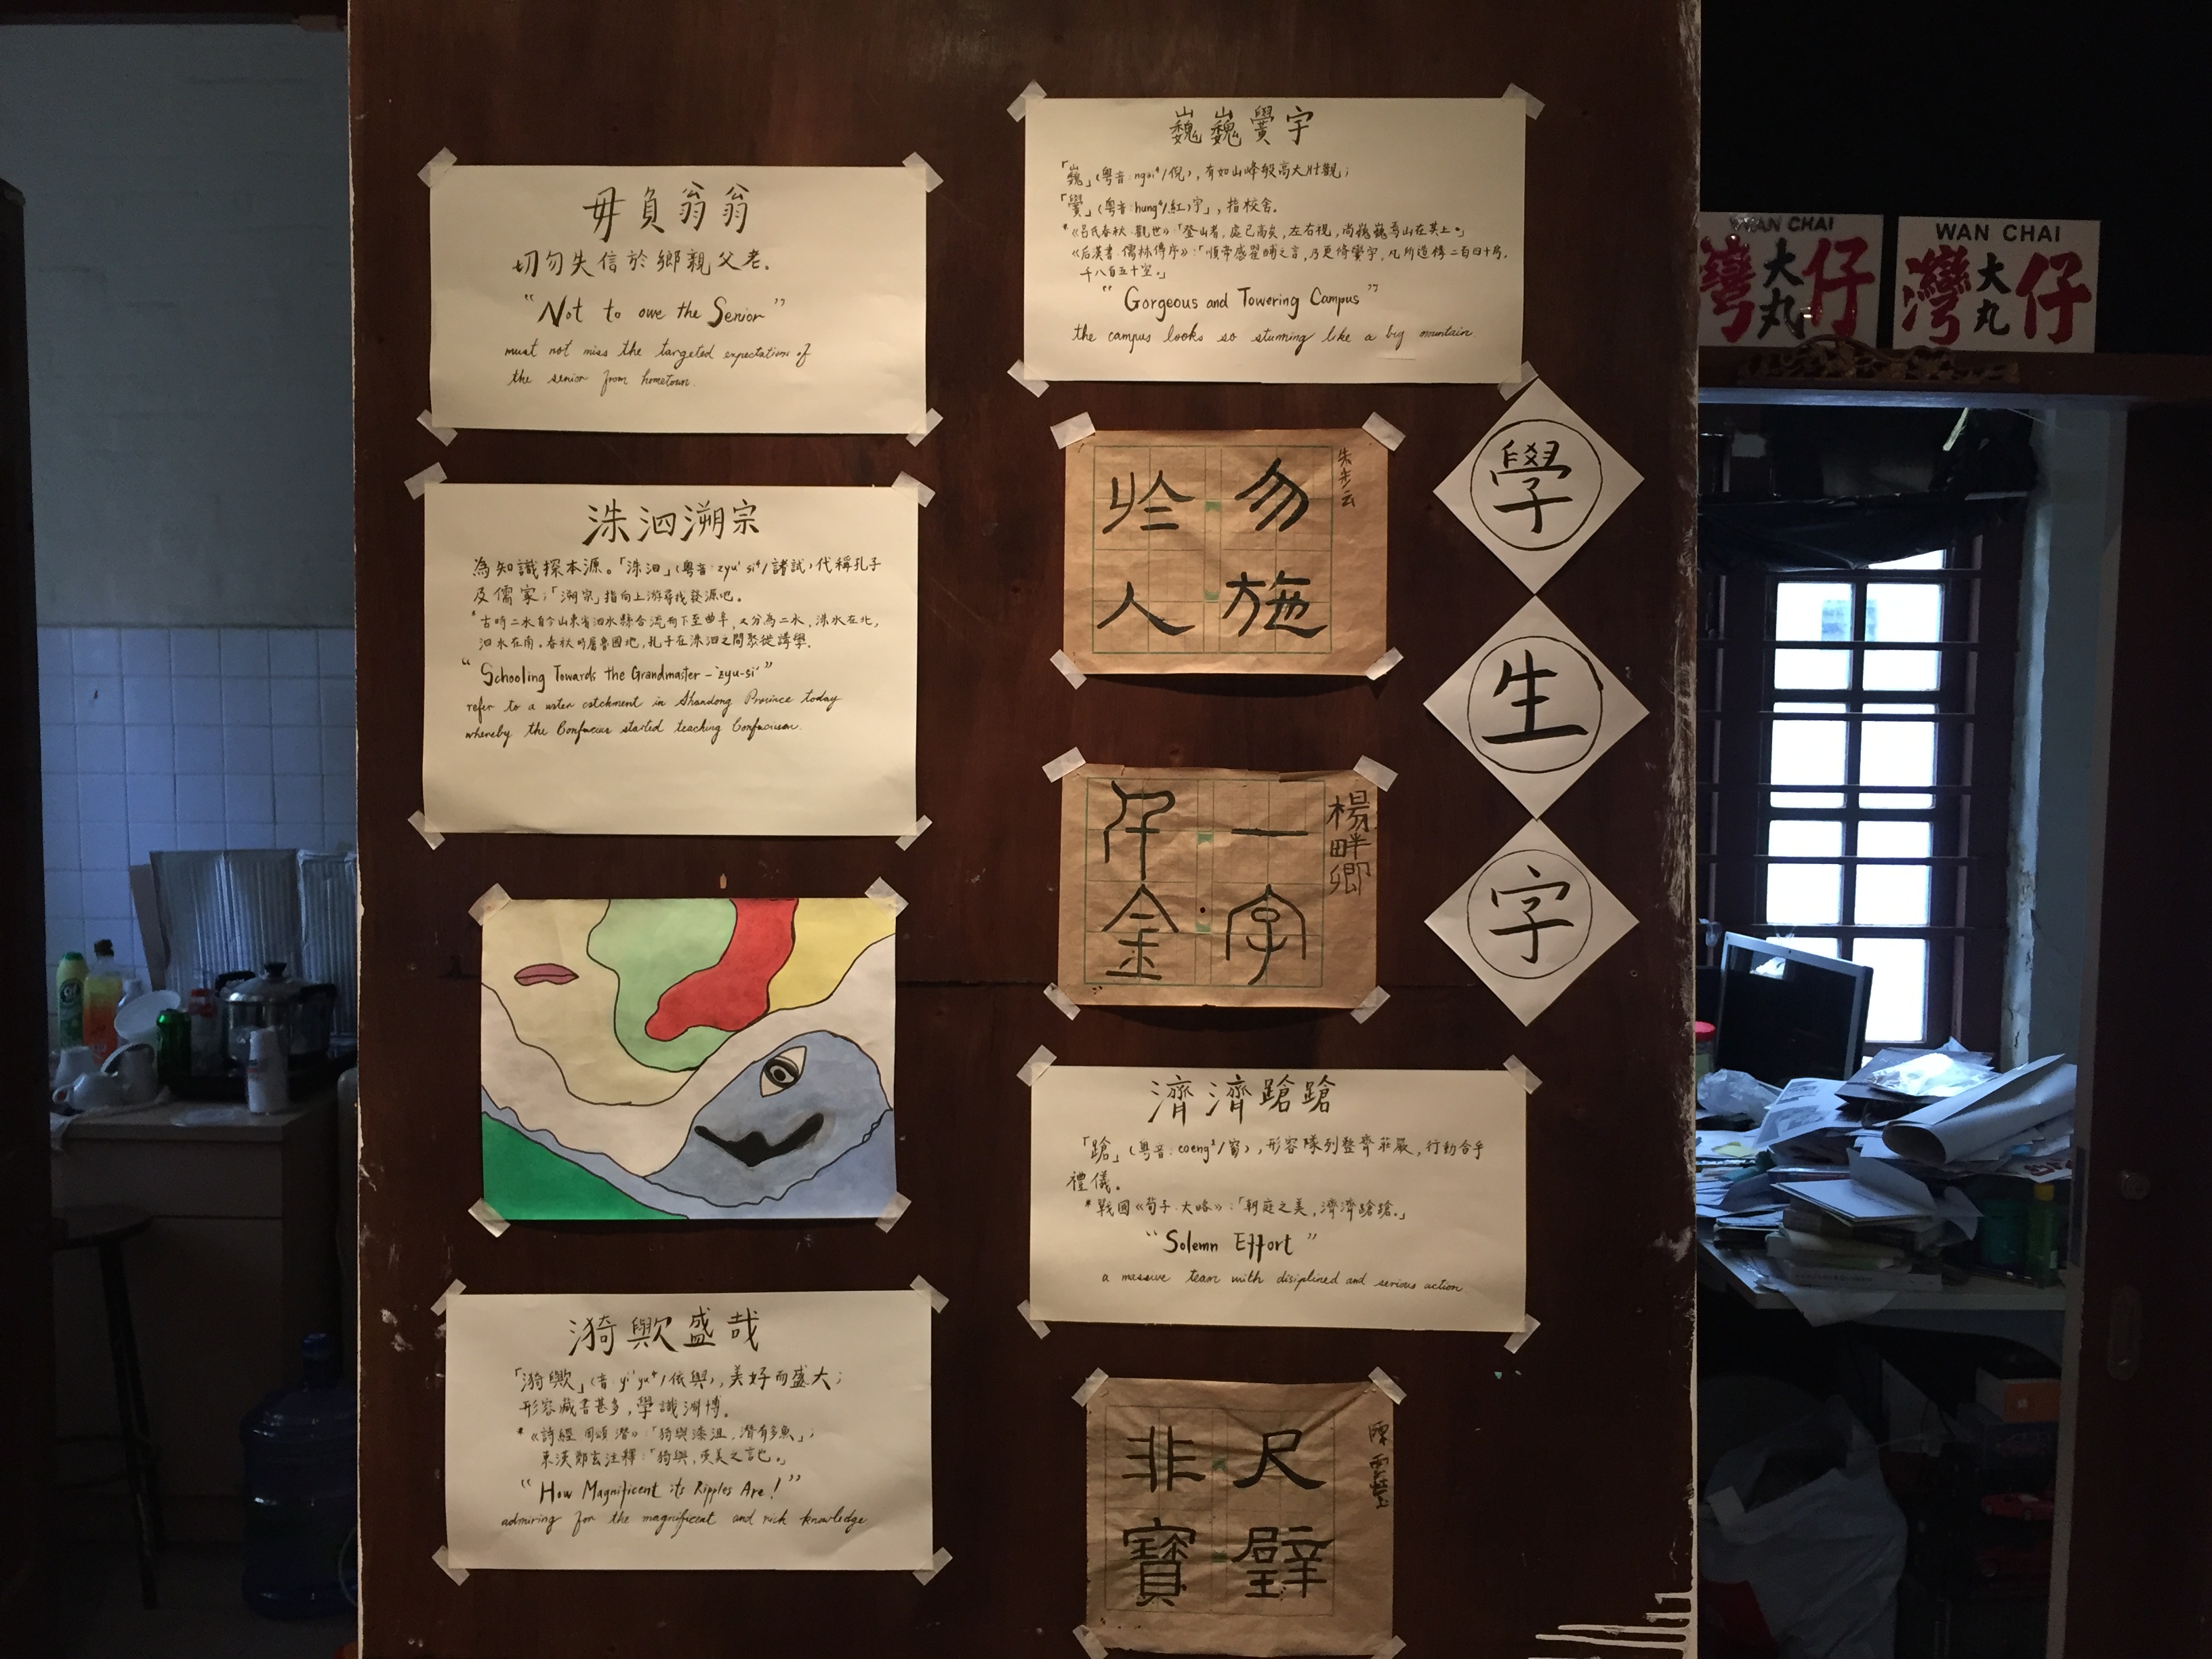 毋負翁翁
切勿失信於鄉親父老.
"Not to owe the Senior"
must not miss the targeted expectation of
the senior from hometown.
洙泗溯宗
為知識探本源。「洙泗」(粵音: zyu¹ si⁴/諸試)代稱孔子
及儒家;「溯宗」指向上游尋找發源地。
*古時二水自今山東省泗水縣合流而下至曲阜,又分為二水,洙水在北,
泗水在南。春秋時屬魯國地,孔子在洙泗之間聚徒講學.
"Schooling Towards the Grandmaster - 'zyu-si'"
refer to a water catchment in Shandong Province today
whereby the Confucius started teaching Confucian.
漪歟盛哉
「漪歟」(音 yi¹ yu⁴/依與),美好而盛大;
形容藏書甚多,學識淵博.
*《詩經 周頌 潛》:「猗與漆沮,潛有多魚」;
東漢鄭玄注釋:「猗與,美之言也。」
"How Magnificent its Ripples Are!"
admiring for the magnificent and rich knowledge
巍巍黌宇
「巍」(粵音: ngai⁴/倪),有如山峰般高大壯觀;
「黌」(粵音: hung⁴/紅)宇」,指校舍.
*《呂氏春秋·觀世》:「登山者,處已高矣,左右視,尚巍巍焉山在其上。」
《后漢書·儒林傳序》:「順帝感翟酺之言,乃更脩黌宇,凡所造構二百四十房,
千八百五十室。」
"Gorgeous and Towering Campus"
the campus looks so stunning like a big mountain.
朱步云
勿施
於人
楊畔卿
一字
千金
學
生
字
濟濟蹌蹌
「蹌」(粵音: coeng¹/窗),形容隊列整齊莊嚴,行動合乎
禮儀。
*戰國《荀子·大略》:「朝廷之美,濟濟蹌蹌。」
"Solemn Effort"
a massive team with disiplined and serious action
尺璧
非寶
WAN CHAI
灣大丸仔
WAN CHAI
灣大丸仔